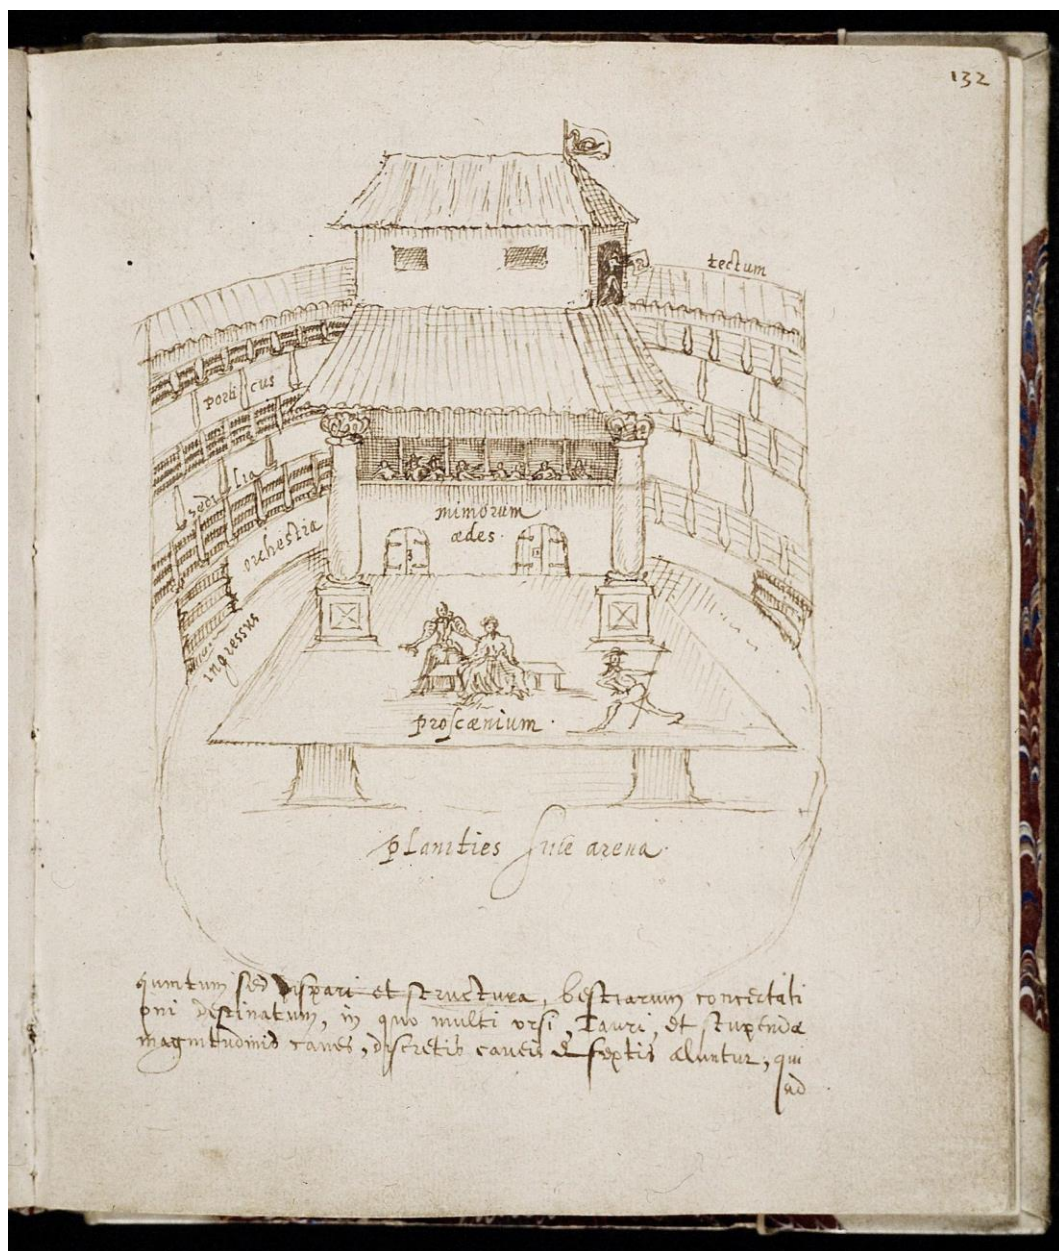 132
tectum
porticus
sedilia
orchestra
ingressus
mimorum
ædes.
proscænium.
planities sive arena.
quintum sed dispari et structura, bestiarum concertati
oni destinatum, in quo multi ursi, Tauri, et stupendæ
magnitudinis canes, discretis caveis & septis aluntur, qui
ad